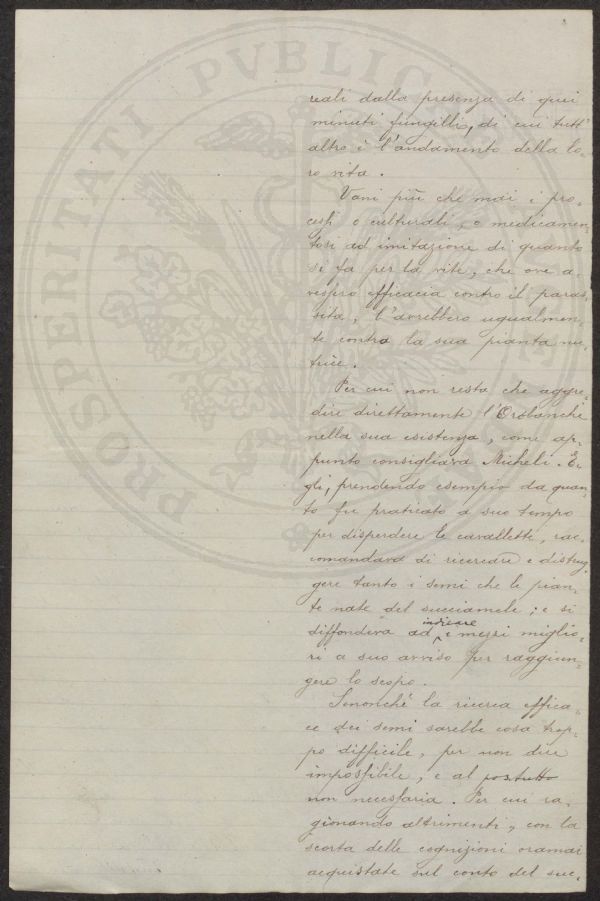 reali dalla presenza di quei
minuti fungilli, di cui tutt'
altro è l'andamento della lo-
ro vita.
Vani più che mai i pro-
cessi e culturali, e medicamen-
tosi ad imitazione di quanto
si fa per la vite, che ove a-
vessero efficacia contro il paras-
sita, l'avrebbero ugualmen-
te contro la sua pianta nu-
trice.
Per cui non resta che aggre-
dire direttamente l'Orobanche
nella sua esistenza, come ap-
punto consigliava Micheli. E-
gli, prendendo esempio da quan-
to fu praticato a suo tempo
per disperdere le cavallette, rac-
comandava di ricercare e distrug-
gere tanto i semi che le pian-
te nate del succiamele; e si
diffondeva ad indicare i mezzi miglio-
ri a suo avviso per raggiun-
gere lo scopo.
Senonché la ricerca effica-
ce dei semi sarebbe cosa trop-
po difficile, per non dire
impossibile, e al postutto
non necessaria. Per cui ra-
gionando altrimenti, con la
scorta delle cognizioni oramai
acquistate sul conto del suc-
PROSPERITATI PVBLIC